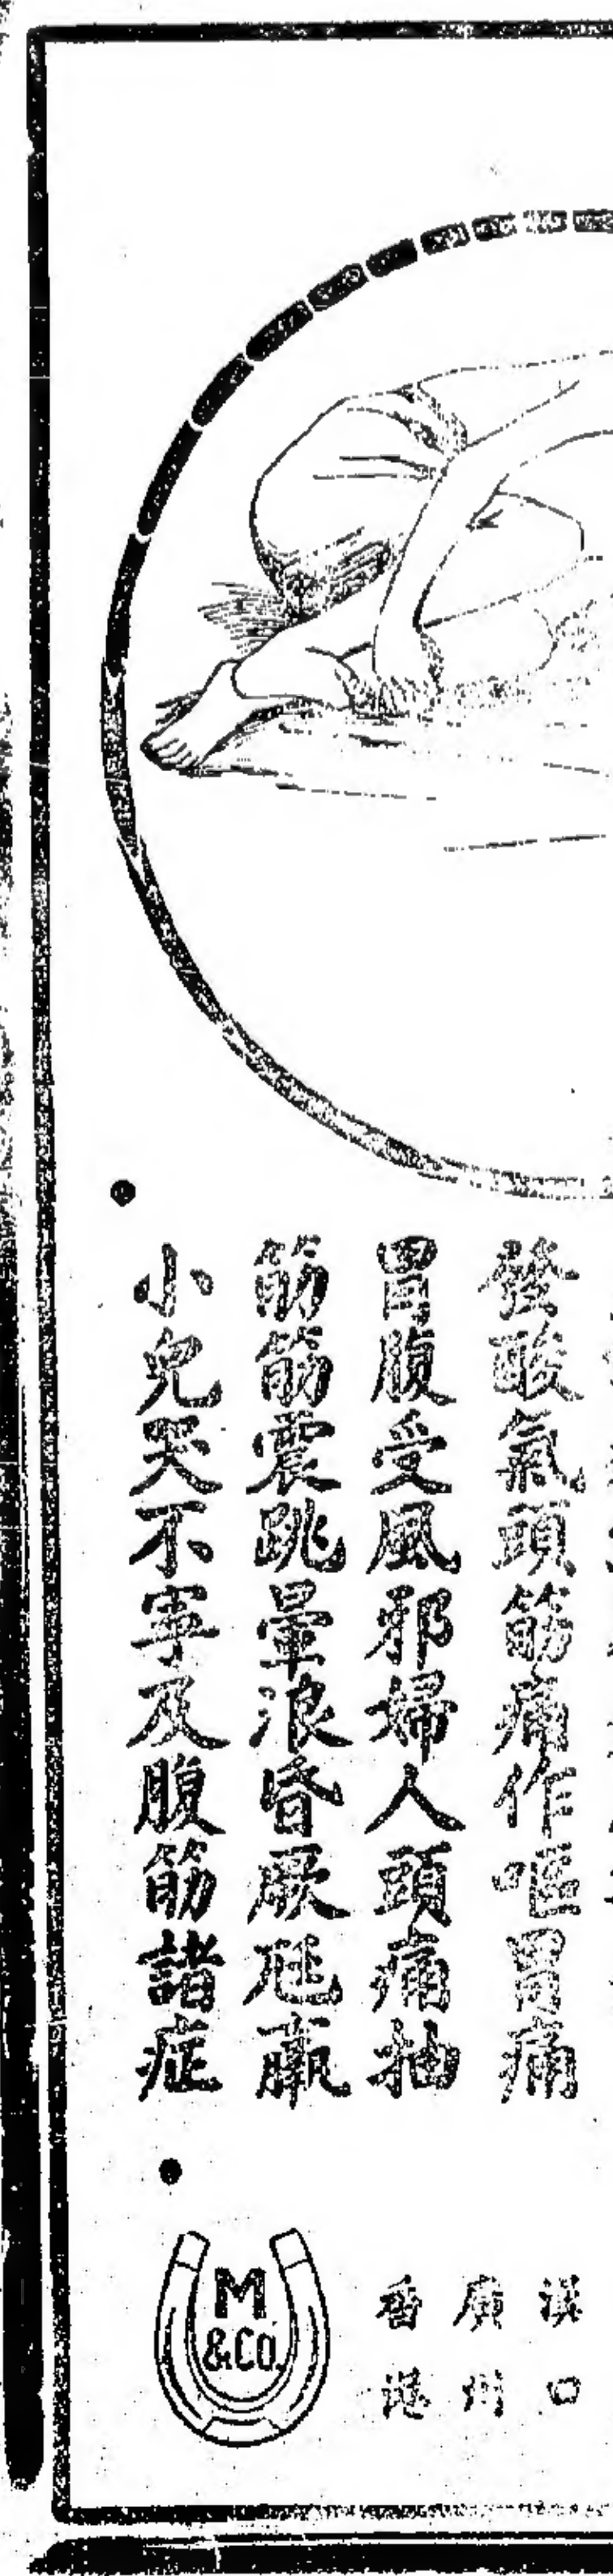 發酸氣頭筋痛作嘔胃痛
胃腹受風邪婦人頭痛抽
筋筋震跳暈浪昏厥尫羸
小兒哭不寧及腹筋諸症
漢口
廣州
香港
M
&Co.